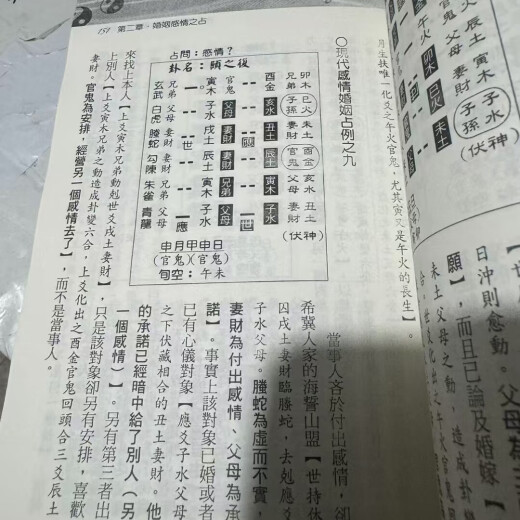 151 第二章、婚姻感情之占
願】，而且已論及婚嫁
日沖則愈動。父母
未土父母之動，造成卦變
子水
子孫
（伏神）
月生扶唯一化爻之午火官鬼，尤其寅又是午火的長生】。
○現代感情婚姻占例之九
占問：感情？
卦名：頤之復
玄武 兄弟 寅木 官鬼 酉金 兄弟 卯木
白虎 父母 子水 父母 亥水 子孫 巳火
螣蛇 妻財 戌土 世 妻財 丑土 妻財 未土
勾陳 妻財 辰土 妻財 辰土 官鬼 酉金
朱雀 兄弟 寅木 兄弟 寅木 父母 亥水
青龍 父母 子水 應 父母 子水 世 妻財 丑土
（伏神）
申月甲申日
（官鬼）（官鬼）
旬空：午未
當事人吝於付出感情，卻
希冀人家的海誓山盟【世持休
囚戌土妻財臨螣蛇，去剋應爻
子水父母。螣蛇為虛而不實，
妻財為付出感情、父母為承
諾】。事實上該對象已婚或者
已有心儀對象【應爻子水父母
之下伏藏相合的丑土妻財。他
的承諾已經暗中給了別人（另
一個感情）】。另有第三者出
來找上本人【上爻寅木兄弟動剋世爻戌土妻財】，只是該對象卻另有安排，喜歡
上別人【上爻寅木兄弟之動造成卦變六合，上爻化出之酉金官鬼回頭合三爻辰土
妻財。官鬼為安排，經營另一個感情去了】，而不是當事人。